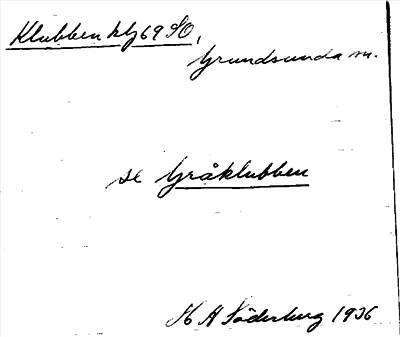 Klubben hlj 69 SO,
Grundsunda sn.
se Gråklubben
H A Söderberg 1936